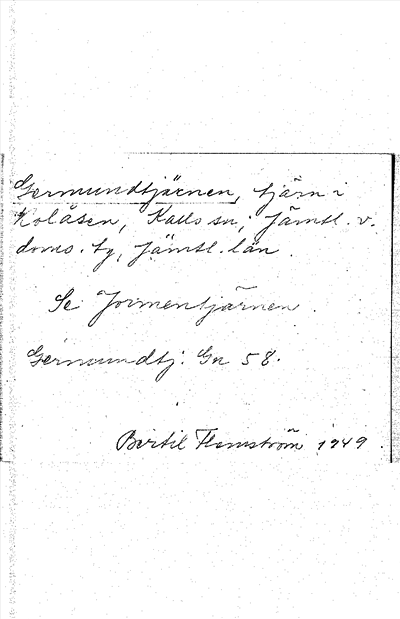 Germundtjärnen, tjärn i
Kolåsen, Kalls sn, Jämtl. v.
doms. tg, Jämtl. län.
Se Jormentjärnen.
Germundtj: Gn 58.
Bertil Flemström 1949.